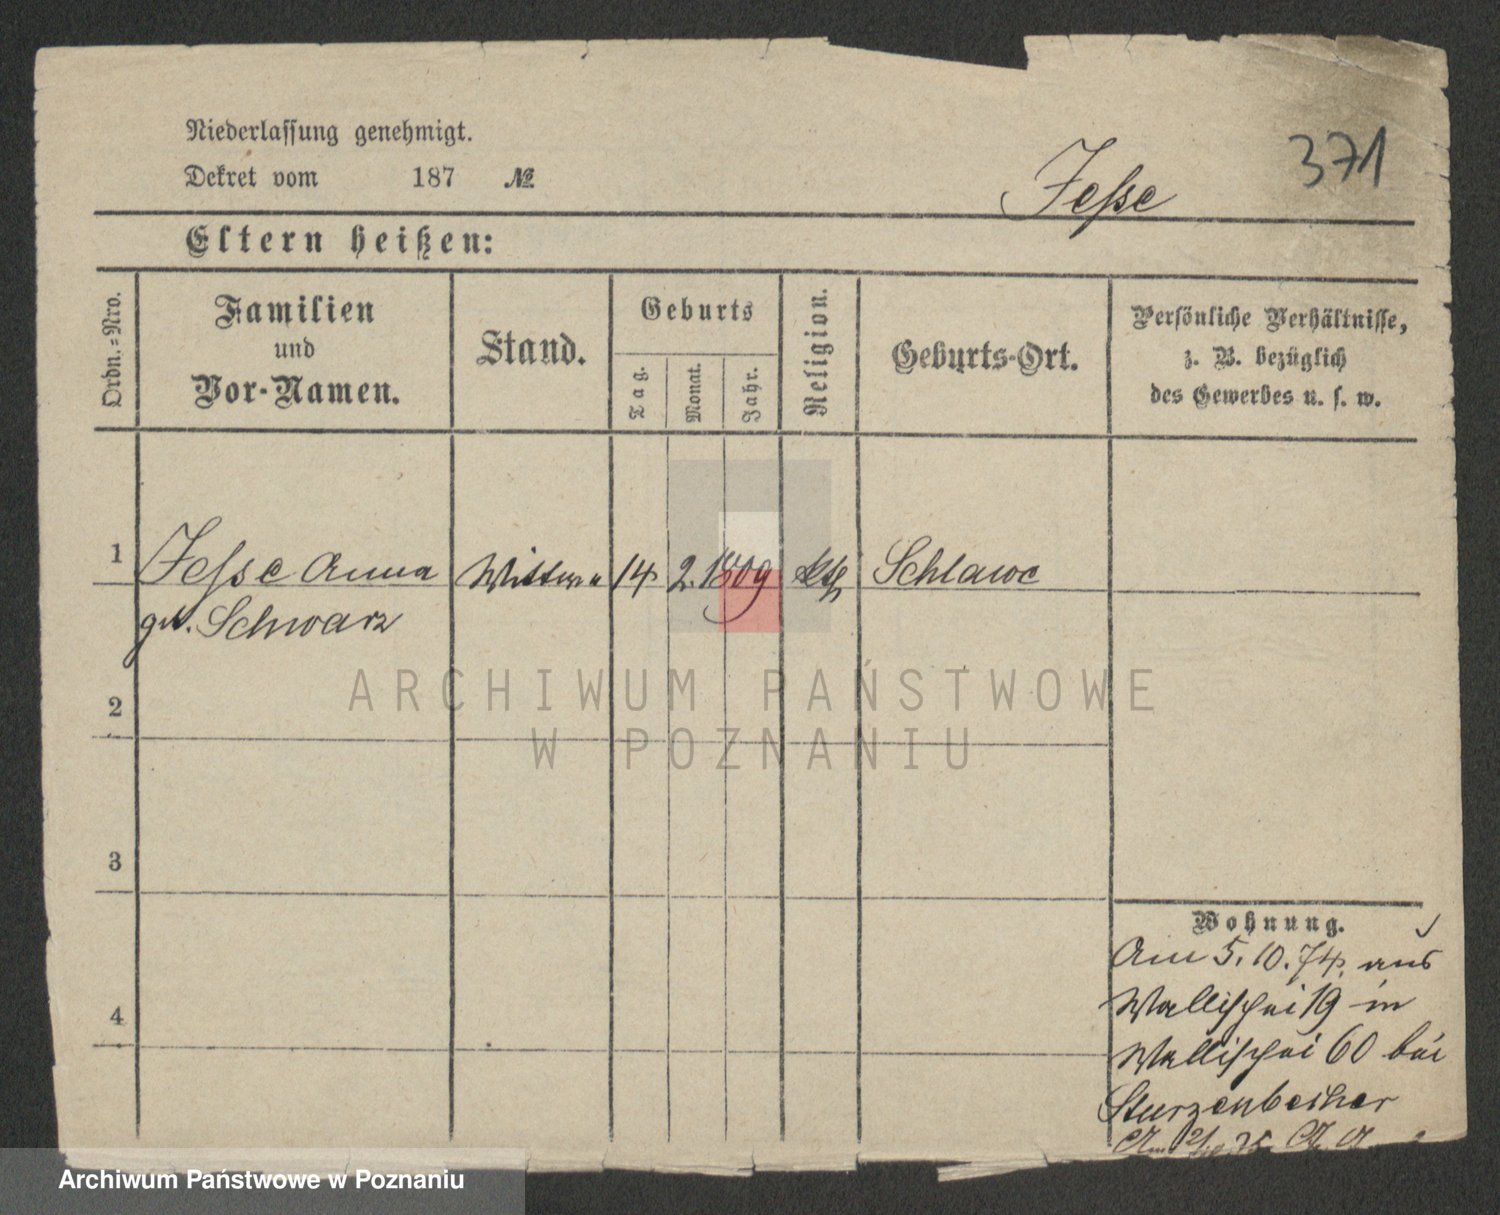 Niederlassung genehmigt.
Dekret vom 187 №
Jesse
371
Eltern heißen:
Ordn.-Nro.
Familien
und
Vor-Namen.
Stand.
Geburts
Tag.
Monat.
Jahr.
Religion.
Geburts-Ort.
Persönliche Verhältnisse,
z. B. bezüglich
des Gewerbes u. s. w.
1 Jesse Anna Wittwe 14 2. 1809 kth Schlawe
geb. Schwarz
2
3
4
Wohnung.
Am 5. 10. 74. aus
Wallischei 19 in
Wallischei 60 bei
Sturzenbecher
ARCHIWUM PAŃSTWOWE
W POZNANIU
Archiwum Państwowe w Poznaniu